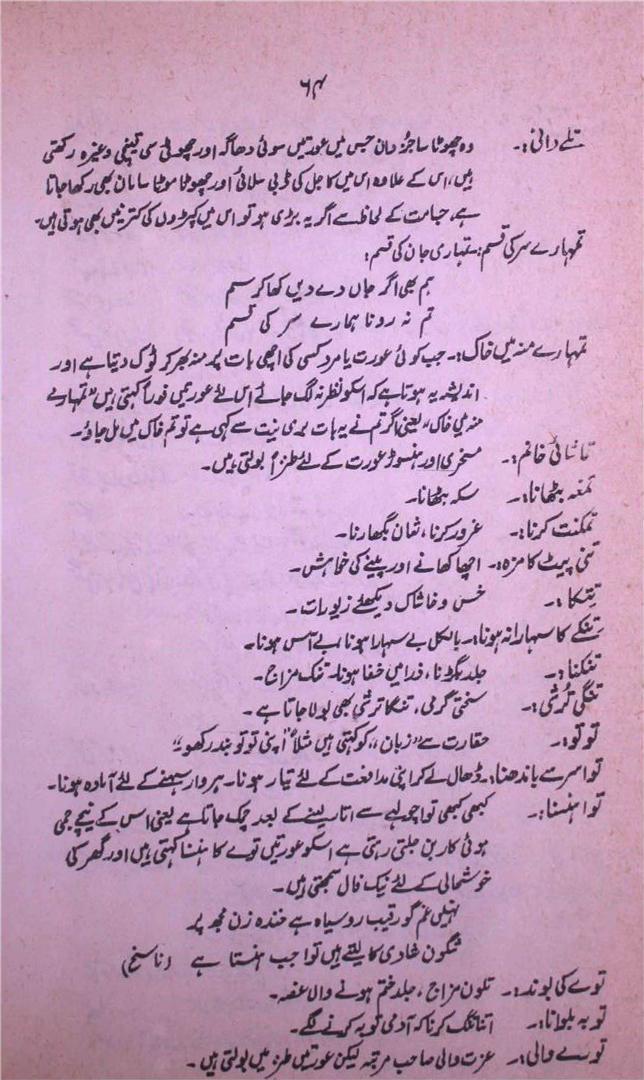 ۶۴
تلے دانی:۔ وہ چھوٹا سا جزدان جس میں عورتیں سوئی دھاگہ اور چھوٹی سی قینچی وغیرہ رکھتی
ہیں، اس کے علاوہ اس میں کاجل کی ڈبی سلائی اور چھوٹا موٹا سامان بھی رکھا جاتا
ہے، جسامت کے لحاظ سے اگر یہ بڑی ہو تو اس میں کپڑوں کی کترنیں بھی ہوتی ہیں۔
تمہارے سر کی قسم:۔ تمہاری جان کی قسم:
ہم بھی اگر جاں دے دیں کھا کر سم
تم نہ رونا ہمارے سر کی قسم
تمہارے منہ میں خاک:۔ جب کوئی عورت یا مرد کسی کی اچھی بات پر منہ بھر کر ٹوک دیتا ہے اور
اندیشہ یہ ہوتا ہے کہ اسکو نظر نہ لگ جائے اس لئے عورتیں فوراً کہتی ہیں "تمہارے
منہ میں خاک" یعنی اگر تم نے یہ بات بری نیت سے کہی ہے تو تم خاک میں مل جاؤ۔
تماشائی خانم:۔ مسخری اور ہنسوڑ عورت کے لئے طنزاً بولتی ہیں۔
تمغہ بٹھانا:۔ سکہ بٹھانا۔
تمکنت کرنا:۔ غرور کرنا، شان بگھارنا۔
تنی پیٹ کا مزہ:۔ اچھا کھانے اور پینے کی خواہش۔
تنکا:۔ خس و خاشاک دیکھئے زیورات۔
تنکے کا سہارا نہ ہونا:۔ بالکل بے سہارا ہونا، بے آس ہونا۔
تنکنا:۔ جلد بگڑنا، ذرا میں خفا ہونا۔ تنک مزاج۔
تنگی تُرشی:۔ سختی گرمی، تنگا ترشی بھی بولا جاتا ہے۔
توتو:۔ حقارت سے "زبان" کو کہتی ہیں مثلاً "اپنی توتو بند رکھو"
توا سر سے باندھنا:۔ ڈھال لے کر اپنی مدافعت کے لئے تیار ہونا۔ ہر وار سہنے کے لئے آمادہ ہونا۔
توا ہنسنا:۔ کبھی کبھی توا چولہے سے اتار لینے کے بعد چمک جاتا ہے یعنی اس کے نیچے جمی
ہوئی کاربن جلتی رہتی ہے اسکو عورتیں توے کا ہنسنا کہتی ہیں اور گھر کی
خوشحالی کے لئے نیک فال سمجھتی ہیں۔
نہیں غم گو رقیب روسیاہ ہے خندہ زن مجھ پر
شگون شادی کا لیتے ہیں توا جب ہنستا ہے (ناسخ)
توے کی بوند:۔ تلون مزاج، جلد ختم ہونے والا غصہ۔
توبہ بلوانا:۔ اتنا تنگ کرنا کہ آدمی توبہ کرنے لگے۔
تورے والی:۔ عزت والی صاحب مرتبہ لیکن عورتیں طنز میں بولتی ہیں۔